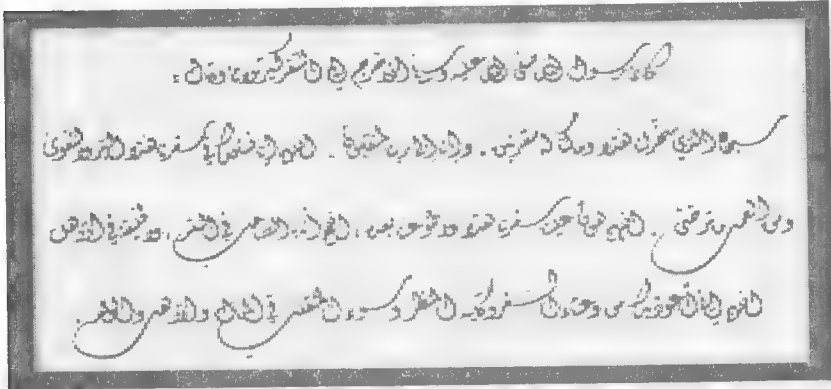 كان رسول الله صلى الله عليه وسلم إذا خرج إلى السفر كبر ثلاثا وقال :
سبحان الذي سخر لنا هذا وما كنا له مقرنين . وإنا إلى ربنا لمنقلبون . اللهم إنا نسألك في سفرنا هذا البر والتقوى
ومن العمل ما ترضى . اللهم هون علينا سفرنا هذا واطو عنا بعده ، اللهم أنت الصاحب في السفر ، والخليفة في الأهل
اللهم إني أعوذ بك من وعثاء السفر وكآبة المنظر وسوء المنقلب في المال والأهل